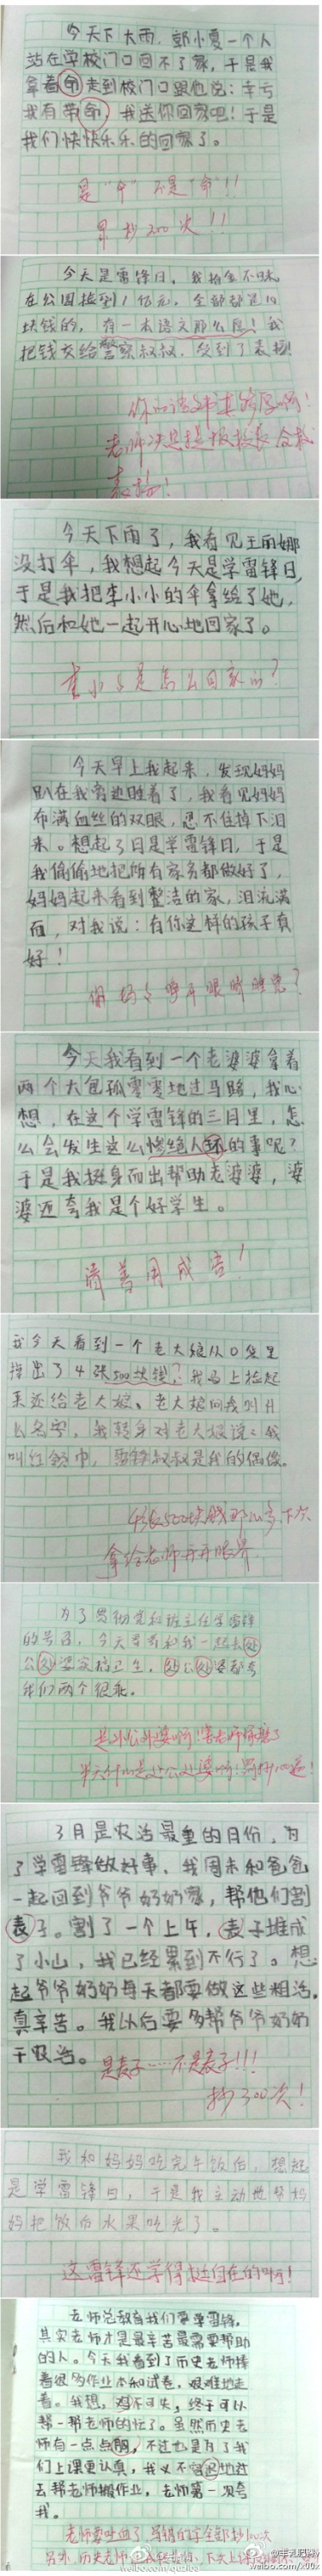 今天下大雨，郭小夏一个人
站在学校门口回不了家，于是我
拿着命走到校门口跟他说：幸亏
我有带命，我送你回家吧！于是
我们快快乐乐的回家了。
是"伞"不是"命"!!
罚抄200次!!
今天是雷锋日，我拾金不昧
在公园捡到1亿元，全部都是10
块钱的，有一本语文那么厚！我
把钱交给警察叔叔，受到了表扬！
你的语文书真够厚啊！
老师决定提报校长合教
表扬！
今天下雨了，我看见王丽娜
没打伞，我想起今天是学雷锋日，
于是我把李小小的伞拿给了她，
然后和她一起开心地回家了。
李小小是怎么回家的？
今天早上我起来，发现妈妈
趴在我旁边睡着了，我看见妈妈
布满血丝的双眼，忍不住掉下泪
来。想起3月是学雷锋日，于是
我偷偷地把所有家务都做好了，
妈妈起来看到整洁的家，泪流满
面，对我说：有你这样的孩子真
好！
你妈妈睁开眼睛睡觉？
今天我看到一个老婆婆拿着
两个大包孤零零地过马路，我心
想，在这个学雷锋的三月里，怎
么会发生这么惨绝人环的事呢？
于是我挺身而出帮助老婆婆，婆
婆还夸我是个好学生。
请善用成语！
我今天看到一个老大娘从口袋里
掉出了4张500块钱，我马上捡起
来还给老大娘、老大娘问我叫什
么名字，我转身对老大娘说：我
叫红领巾，雷锋叔叔是我的偶像。
4张500块钱那么多下次
拿给老师开开眼界
为了贯彻党和班主任学雷锋
的号召，今天哥哥和我一起去处
公处婆家搞卫生，处公处婆都夸
我们两个很乖。
是外公外婆啊！害老师琢磨了
半天什么是处公处婆啊！罚抄100遍！
3月是农活最重的月份，为
了学雷锋做好事，我周末和爸爸
一起回到爷爷奶奶家，帮他们割
表子。割了一个上午，表子堆成
了小山，我已经累到不行了。想
起爷爷奶奶每天都要做这些粗活，
真辛苦。我以后要多帮爷爷奶奶
干农活。
是麦子……不是表子!!!
抄300次！
我和妈妈吃完午饭后，想起
是学雷锋日，于是我主动地帮妈
妈把饭后水果吃光了。
这雷锋还学得挺自在的啊！
老师总教育我们要学雷锋，
其实老师才是最辛苦最需要帮助
的人。今天我看到了历史老师捧
着很多作业本和试卷，艰难地走
着。我想，机不可失，终于可以
帮一帮老师的忙了。虽然历史老
师有一点点胸，不过也是为了我
们上课更认真，我义不容地过
去帮老师搬作业，老师第一次夸
我。
老师要吐血了，写错的字全部抄100次